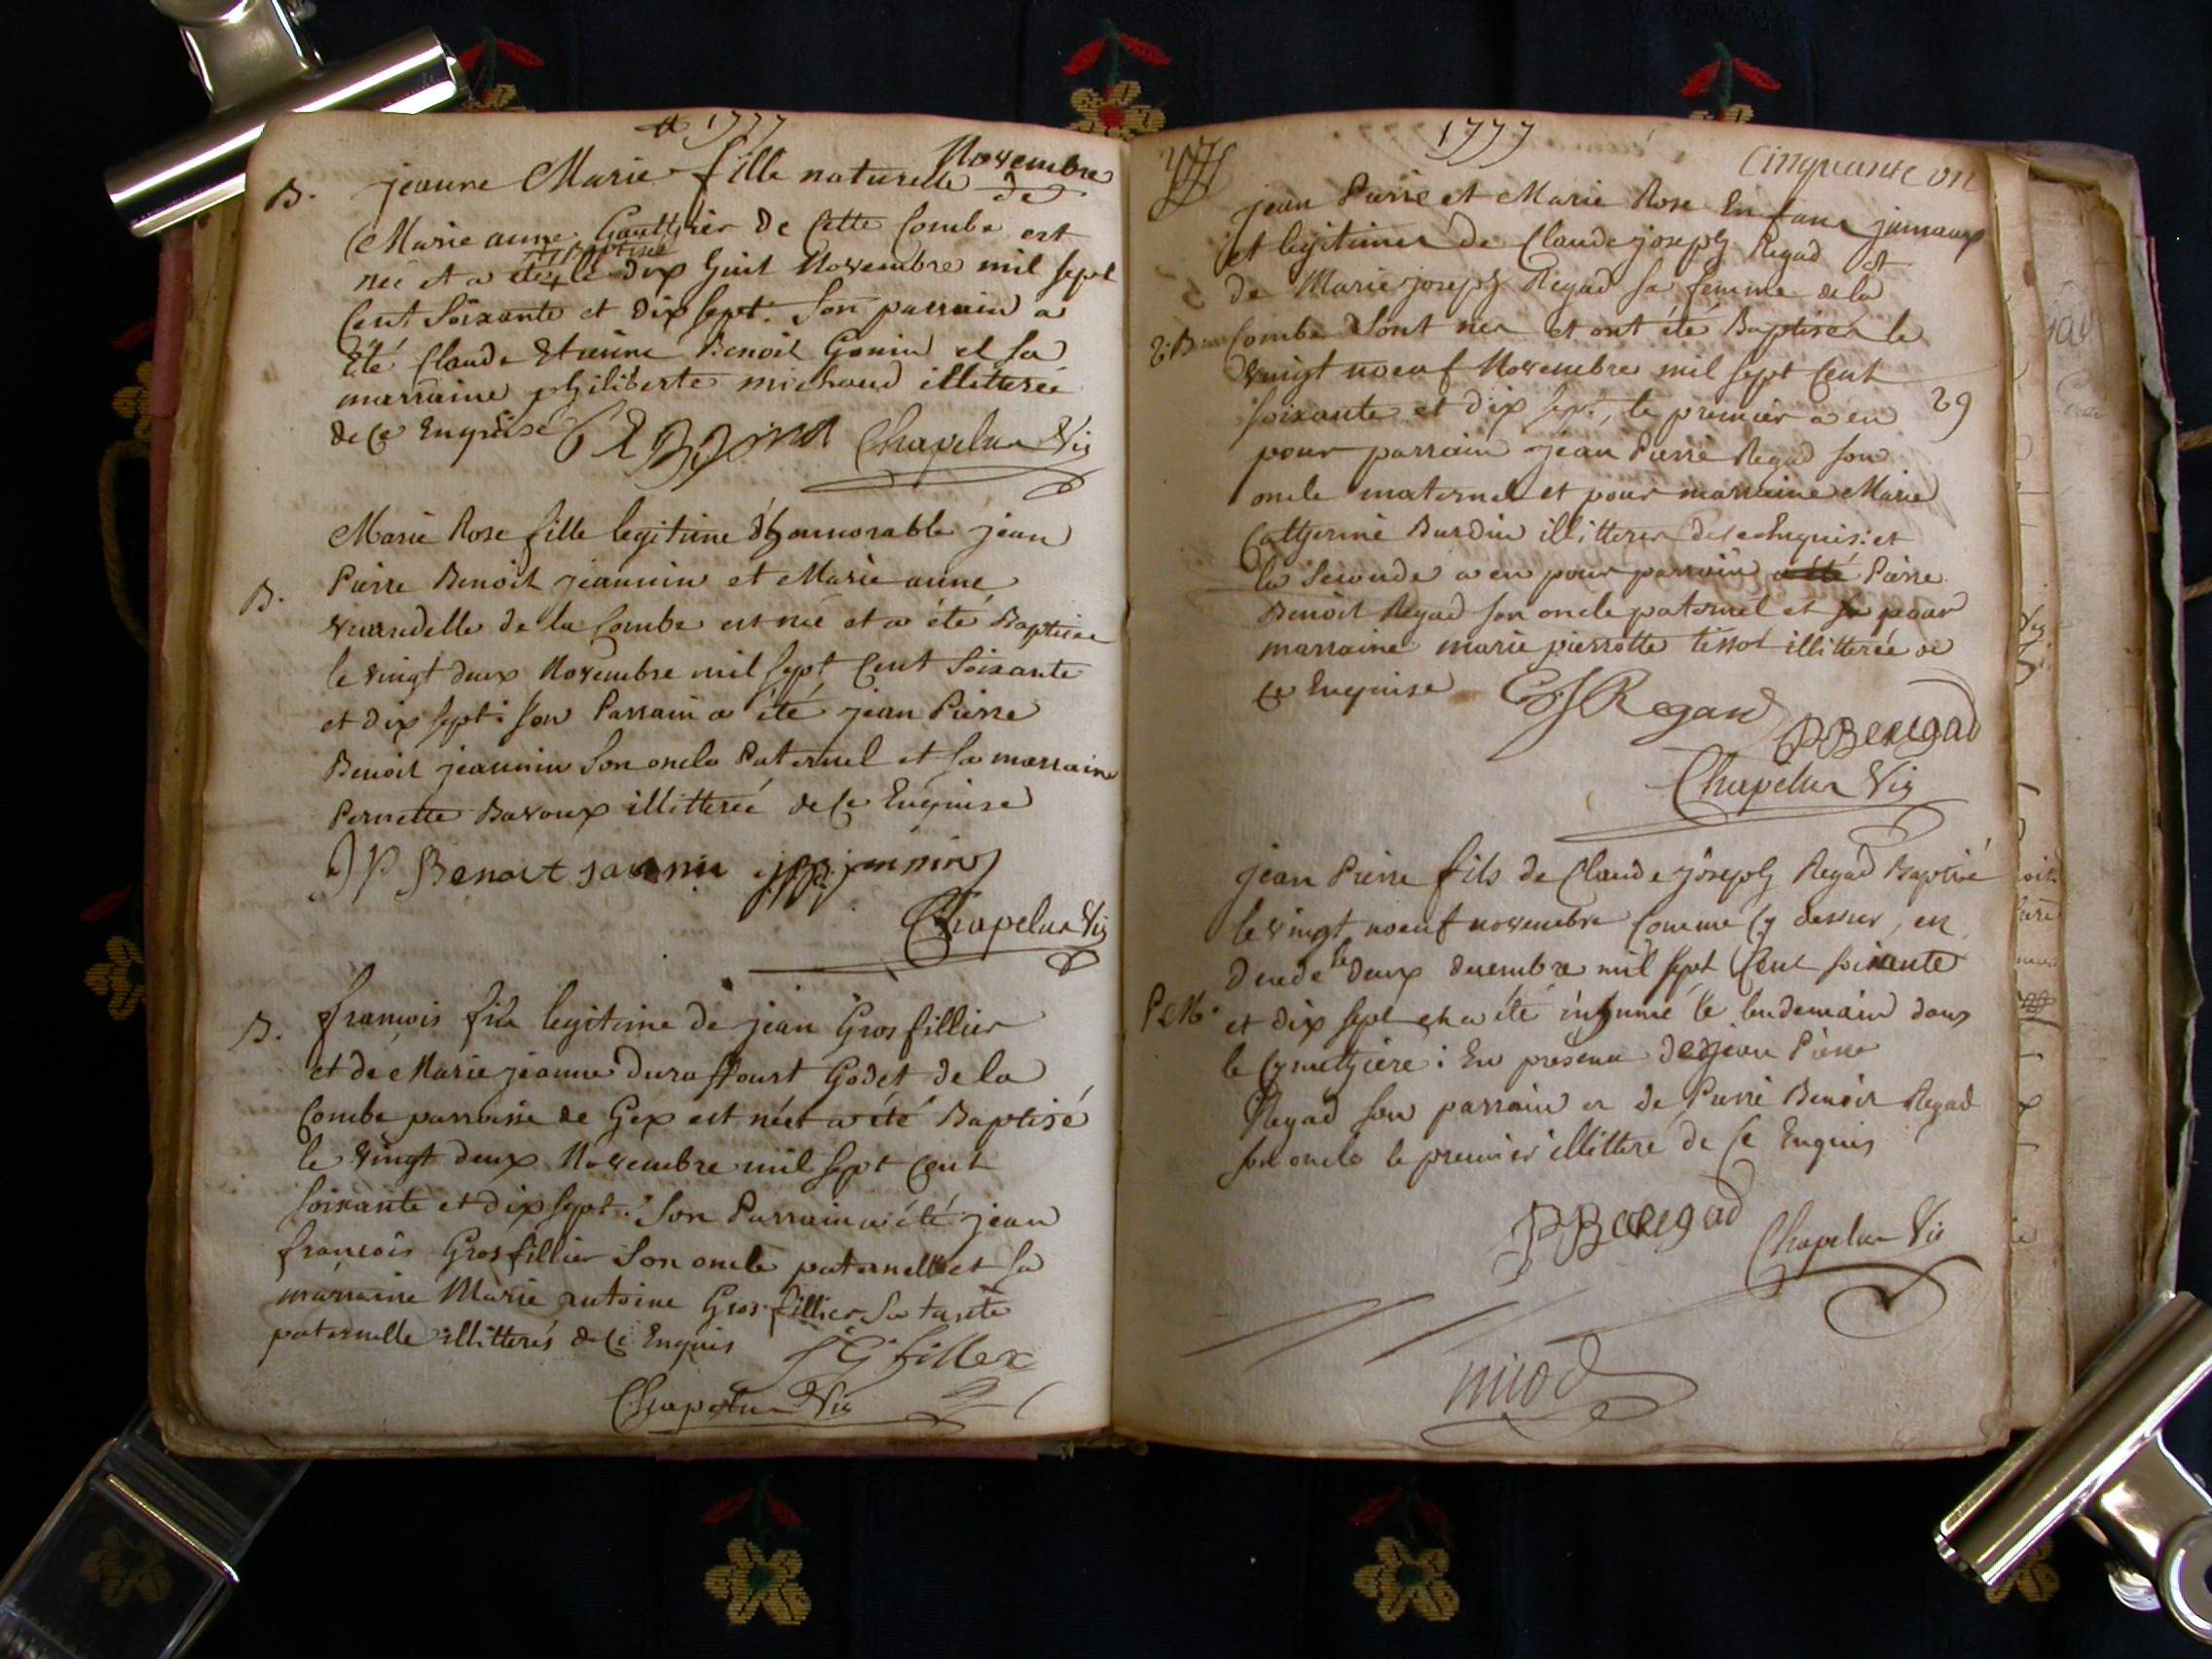 1777
Novembre
B. jeanne Marie fille naturelle de
Marie anne Gautthier de Cette Combe est
baptisée
née et a étée le dix huit Novembre mil sept
Cent Soixante et dix sept. Son parrain a
Eté Claude Etienne Benoit Gonin et sa
marraine philiberte michaud illitterée
de ce Enquise
Chapelu Vic
Marie Rose fille legitime d'honnorable jean
B. Pierre Benoit jeannin et Marie anne
vuandelle de la Combe est née et a été Baptisée
le vingt deux Novembre mil sept Cent Soixante
et dix sept: son Parrain a été jean Pierre
Benoit jeannin Son oncle Paternel et sa marraine
Pernette Baroux illitterée de Ce Enquise
JP Benoit jannin jpb: jannin
Chapelu Vic
B. françois fils legitime de jean Grosfillier
et de Marie jeanne Duraffourt Godet de la
Combe parroisse de Gex est né et a été Baptisé
le vingt deux Novembre mil sept Cent
soixante et dix sept: Son Parrain a été jean
françois Grosfillier Son oncle paternelle et sa
marraine Marie antoine Gros-fillier sa tante
paternelle illitterés de Ce Enquis
J G fillex
Chapelu Vic
1777
Cinquante un
jean Pierre et Marie Rose Enfans jumaux
et legitimes de Claude joseph Regad et
de Marie joseph Regad sa femme de la
2. B. Combe Sont nes et ont été Baptisés le
vingt noeuf Novembre mil sept Cent
soixante et dix sept, le premier a eu 29
pour parrain jean Pierre Regad son
oncle maternel et pour marraine Marie
Catherine Burdin illitteres de ce Enquis: et
la Seconde a eu pour parrain a été Pierre
Benoit Regad son oncle paternel et sa pour
marraine marie pierrotte tissot illitterée de
Ce Enquise CJ Regad
PBeregad
Chapelu Vic
jean Pierre fils de Claude joseph Regad Baptisé
le vingt noeuf novembre comme Cy dessus, en
decede le deux decembre mil sept Cent soixante
P.M. et dix sept et a été inhumé le lendemain dans
le Cymethiere: En presence de jean Pierre
Regad son parrain et de Pierre Benoit Regad
son oncle le premier illitteré de Ce Enquis
PBeregad Chapelu Vic